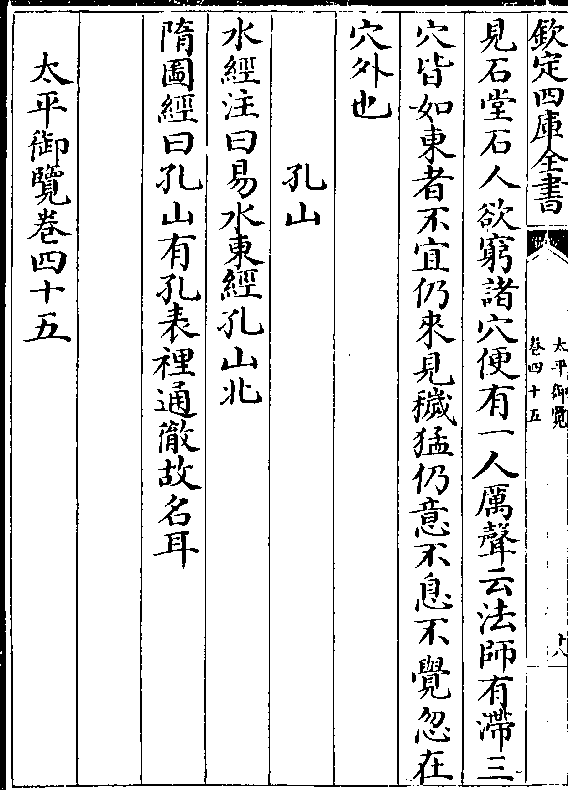 欽定四庫全書
太平御覽
卷四十五
十八
見石堂石人欲窮諸穴便有一人厲聲云法師有滯三
穴皆如東者不宜仍來見穢猛仍意不息不覺忽在
穴外也
孔山
水經注曰易水東經孔山北
隋圖經曰孔山有孔表裡通徹故名耳
太平御覽卷四十五